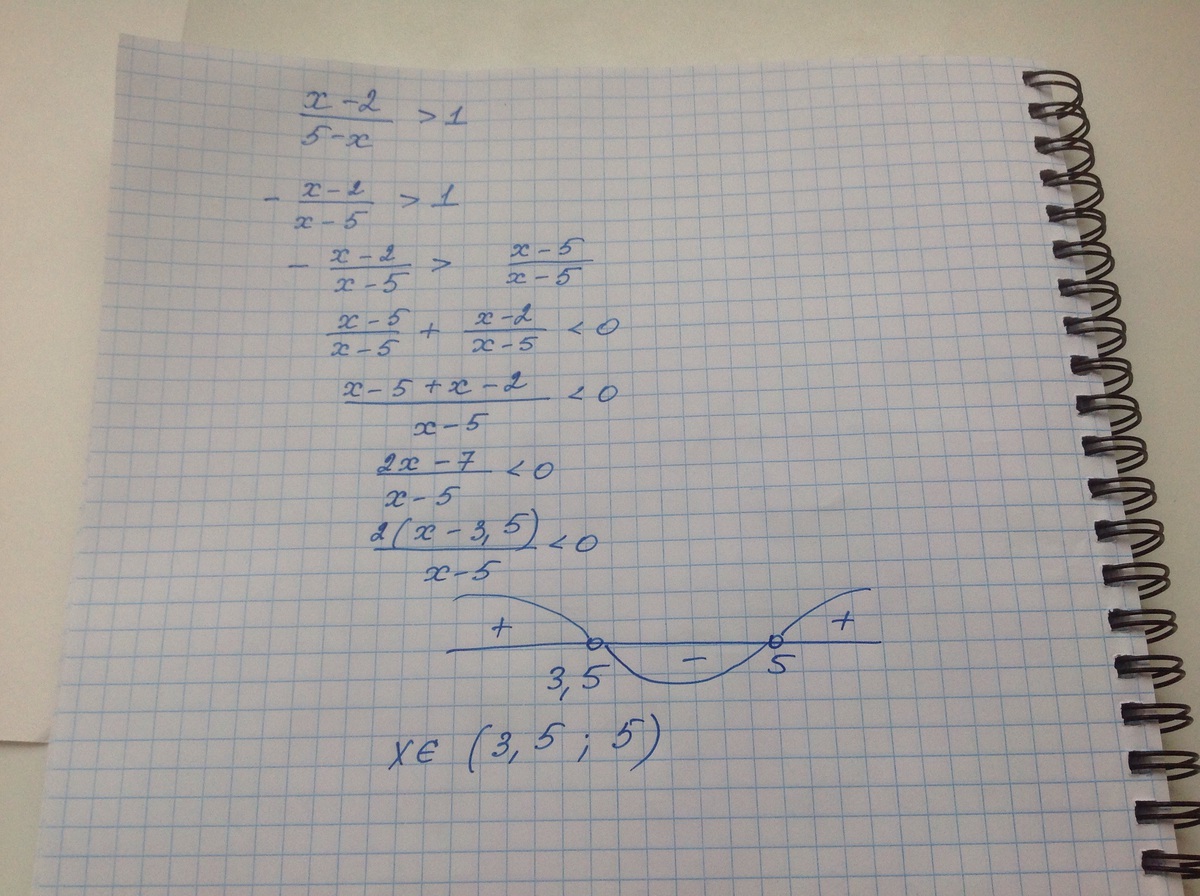 (x-2)/(5-x) > 1
- (x-2)/(x-5) > 1
- (x-2)/(x-5) > (x-5)/(x-5)
(x-5)/(x-5) + (x-2)/(x-5) < 0
(x-5+x-2)/(x-5) < 0
(2x-7)/(x-5) < 0
2(x-3,5)/(x-5) < 0
+ - +
3,5 5
x∈ (3,5 ; 5)